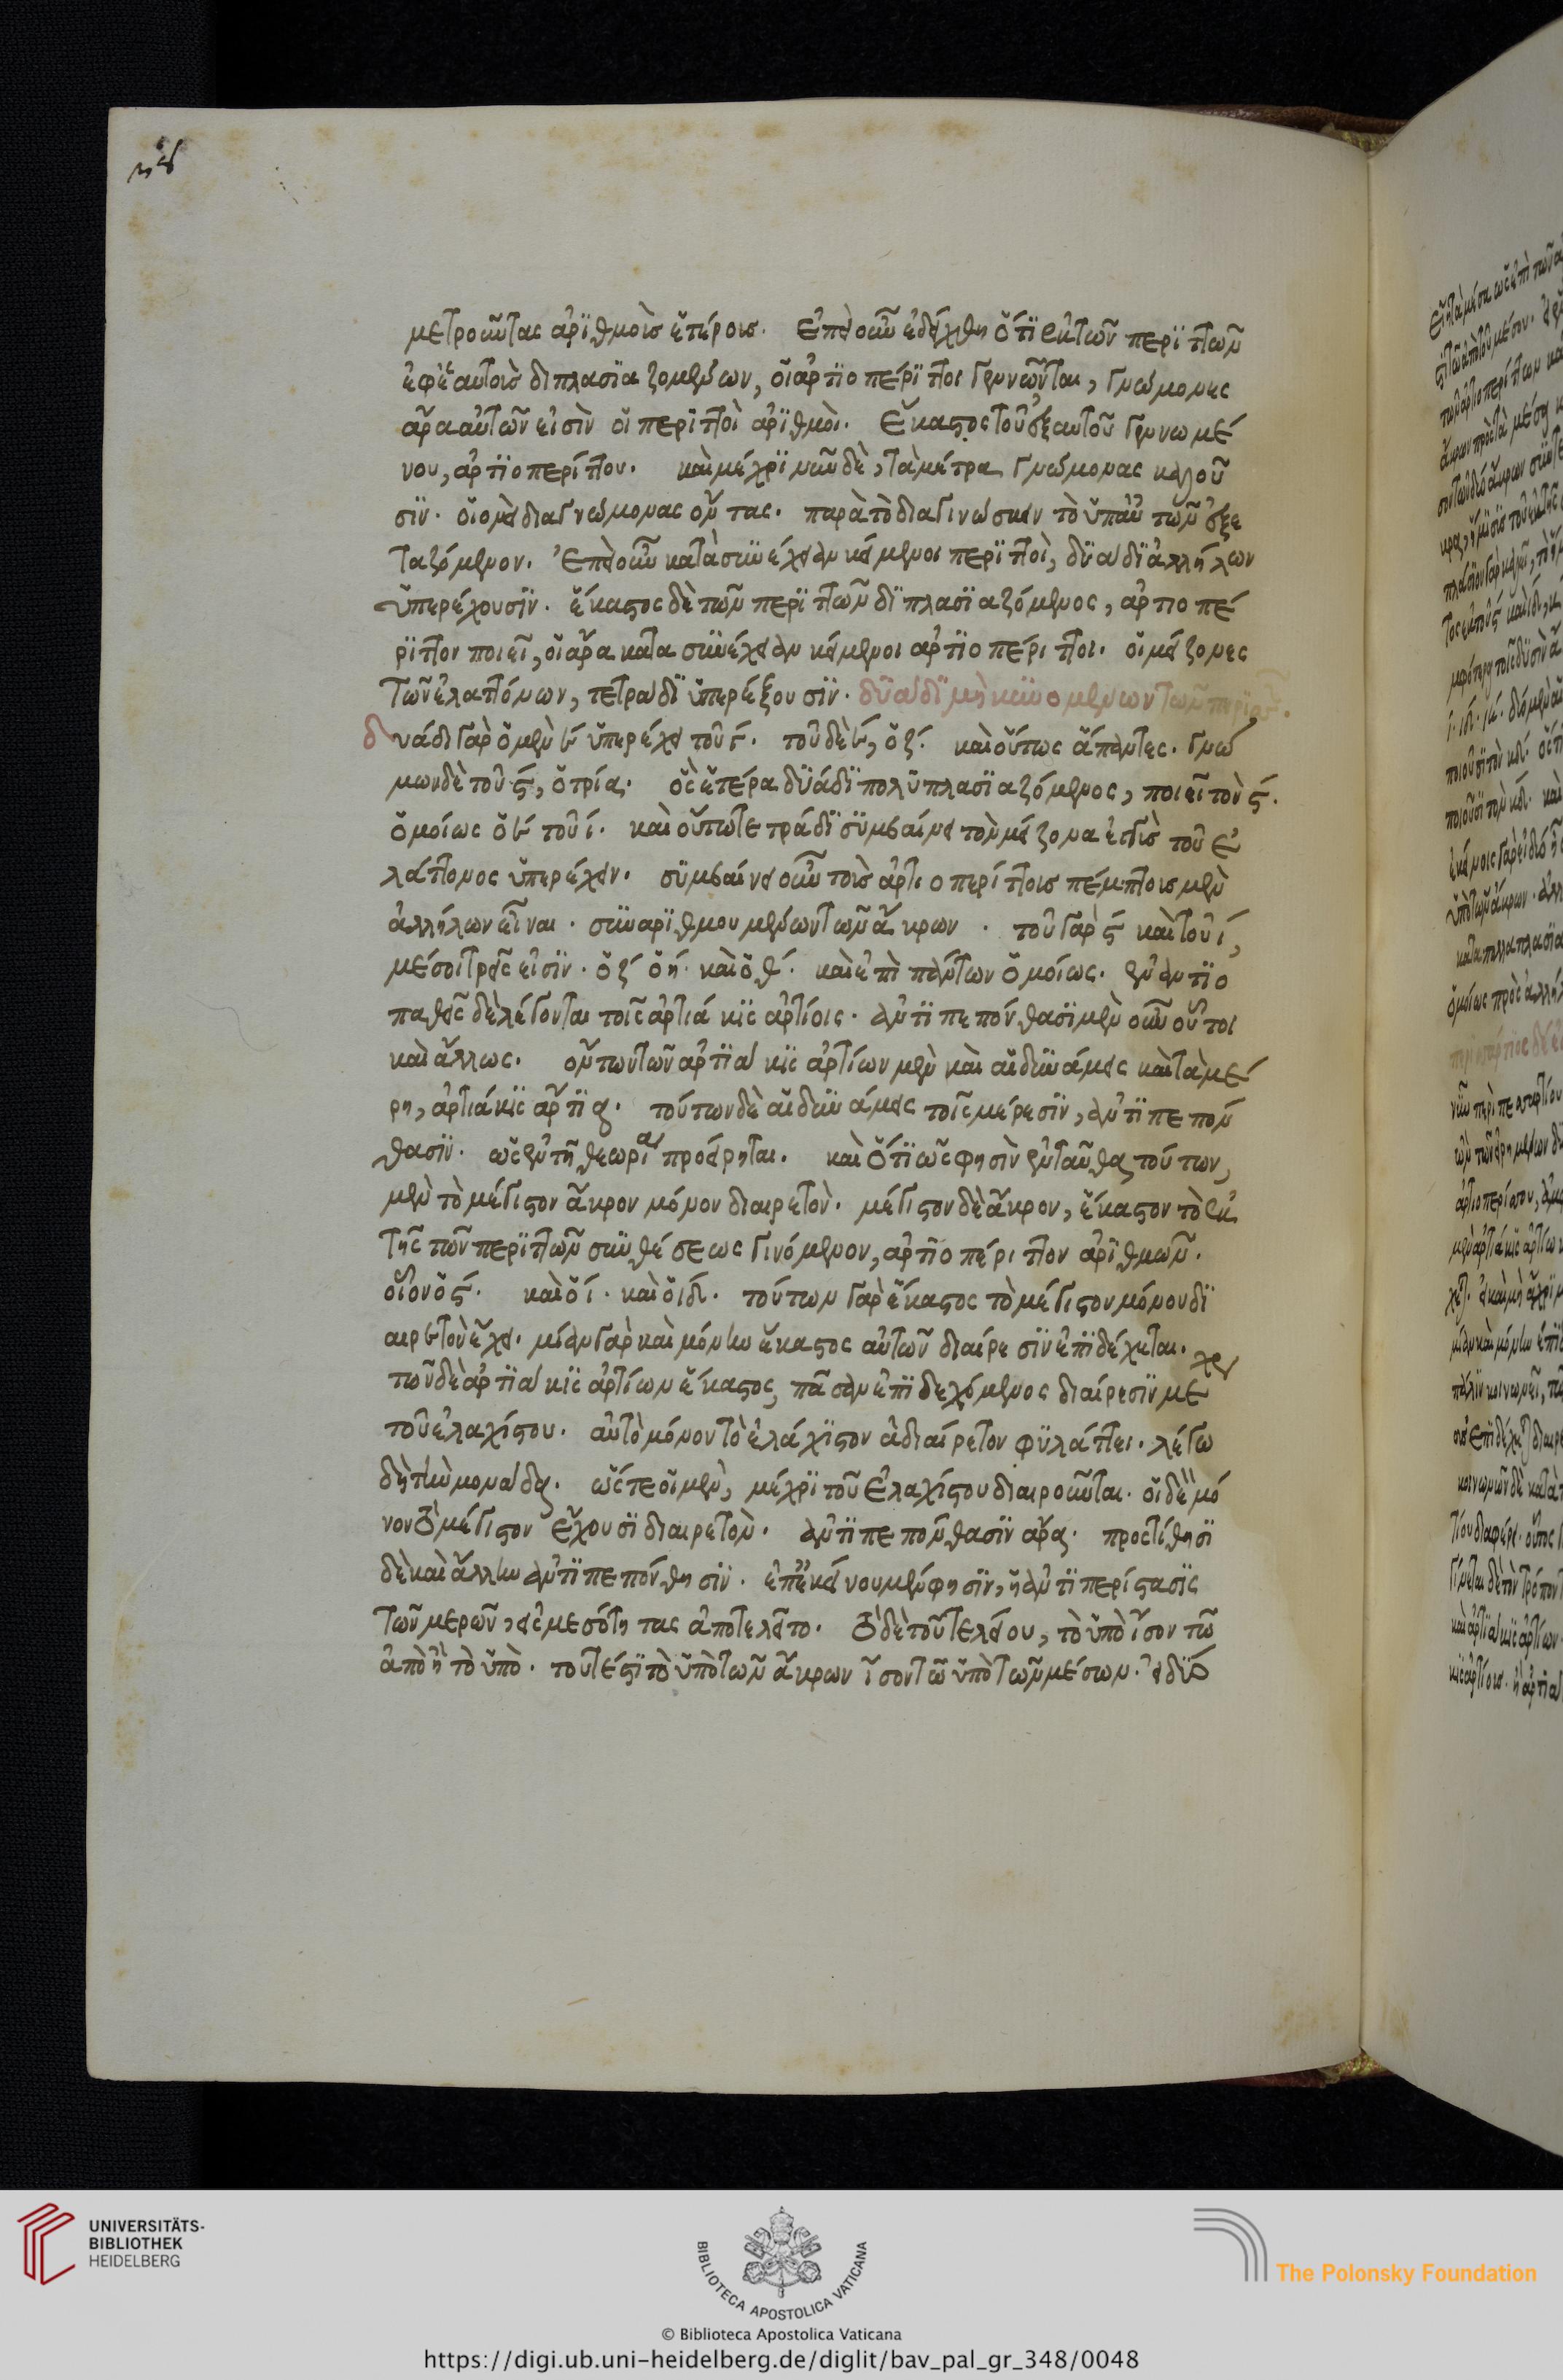 μετροῦντας ἀρϊθμοὶς ἑτέροις. Ἐπεὶ οὖν ἐδείχθη ὅτι ἐκ τῶν περϊττῶν
ἐφ' ἑαυτοὶς διπλασϊαζομένων, οἱ ἀρτϊοπέρϊττοι γεννῶνται, γνώμονες
ἄρα αὐτῶν εἰσὶν οἱ περϊττοὶ ἀρϊθμοὶ. Ἕκαστος τοῦ ἐξ αυτοῦ γεννωμέ
νου, ἀρτϊοπερίττου. καὶ μέχρϊ νῦν δὲ, τὰ μέτρα γνώμονας καλοῦ
σϊν. οἱονεὶ διαγνώμονας ὄντας. παρὰ τὸ διαγινώσκειν τὸ ὑπ' αὐτῶν ἐξε
ταζόμενον. Ἐπεὶ οὖν κατὰ συνέχειαν κείμενοι περϊττοὶ, δϋάδϊ ἀλλήλων
ὑπερέχουσϊν. ἕκαστος δὲ τῶν περϊττῶν δϊπλασϊαζόμενος, ἀρτιοπέ
ρϊττον ποιεῖ, οἱ ἄρα κατα συνέχειαν κείμενοι ἀρτϊοπέριττοι. οἱ μείζονες
τῶν ἐλαττόνων, τετράδϊ ὑπερέξουσϊν. δϋάδϊ μηκϋνομένων τῶν περϊττῶν.
δυάδι γὰρ ὁ μὲν ε ὑπερέχει τοῦ γ. τοῦ δὲ ε, ὁ ζ. καὶ οὕτως ἅπαντες. γνώ
μων δὲ τοῦ ς, ὁ τρία. ὃς ἑτέρα δϋάδϊ πολϋπλασϊαζόμενος, ποιεῖ τὸν ς.
ὁμοίως ὁ ε τοῦ ι. καὶ οὕτω τετράδϊ σϋμβαίνει τὸν μείζονα ἐκτὸς τοῦ ἐ
λάττονος ὑπερέχειν. σϋμβαίνει οὖν τοὶς ἀρτιοπερίττοις πέμπτοις μὲν
ἀλλήλων εἶναι. συναρϊθμουμένων τῶν ἄκρων. τοῦ γὰρ ς καὶ τοῦ ι,
μέσοι τρεῖς εἰσϊν. ὁ ζ ὁ η. καὶ ὁ θ. καὶ ἐπὶ πάντων ὁμοίως. ἐναντϊο
παθεῖς δὲ λέγονται τοῖς ἀρτιάκϊς ἀρτίοις. ἀντϊπεπόνθασϊ μὲν οὖν οὗτοι
καὶ ἄλλως. ὄντων τῶν ἀρτϊάκϊς ἀρτίων μὲν καὶ αἱ δϋνάμεις καὶ τὰ μέ
ρη, ἀρτιάκϊς ἄρτϊα. τούτων δὲ αἱ δϋνάμεις τοῖς μέρεσϊν, ἀντϊπεπόν
θασϊν. ὡς ἐν τῆ θεωρίᾳ προείρηται. καὶ ὅτϊ ὥς φησὶν ἐνταῦθα τούτων,
μὲν τὸ μέγιστον ἄκρον μόνον διαιρετὸν. μέγιστον δὲ ἄκρον, ἕκαστον τὸ ἐκ
τῆς τῶν περϊττῶν συνθέσεως γινόμενον, ἀρτϊοπέριττον ἀρϊθμῶν.
οἷον ὁ ς. καὶ ὁ ι. καὶ ὁ ιδ. τούτων γὰρ ἕκαστος τὸ μέγιστον μόνον δϊ
αιρετὸν ἔχει. μίαν γὰρ καὶ μόνην ἕκαστος αὐτῶν διαίρεσϊν ἐπϊδέχεται.
τῶν δὲ ἀρτϊάκϊς ἀρτίων ἕκαστος, πᾶσαν ἐπϊδεχόμενος διαίρεσϊν μέχρι
τοῦ ἐλαχίστου. αὐτὸ μόνον τὸ ἐλάχϊστον ἀδιαίρετον φϋλάττει. λέγω
δὴ τὴν μονάδα. ὥστε οἱ μὲν, μέχρϊ τοῦ ἐλαχίστου διαιροῦνται. οἱ δὲ μό
νον τὸ μέγιστον ἔχουσϊ διαιρετὸν. ἀντϊπεπόνθασϊν ἄρα. προστίθησϊ
δὲ καὶ ἄλλην ἀντϊπεπόνθησϊν. ἐπ' ἐκείνου μέν φησϊν, ἡ ἀντϊπερίστασϊς
τῶν μερῶν, εἰ μεσότητας ἀποτελεῖτο. τὸ δὲ τοῦ τελείου, τὸ ὑπὸ ἴσον τῶ
ἀπὸ ἢ τὸ ὑπὸ. τουτέστϊ τὸ ὑπὸ τῶν ἄκρων ἴσον τῶ ὑπὸ τῶν μέσων. εἰ δύο
UNIVERSITÄTS-
BIBLIOTHEK
HEIDELBERG
BIBLIOTECA APOSTOLICA VATICANA
The Polonsky Foundation
© Biblioteca Apostolica Vaticana
https://digi.ub.uni-heidelberg.de/diglit/bav_pal_gr_348/0048